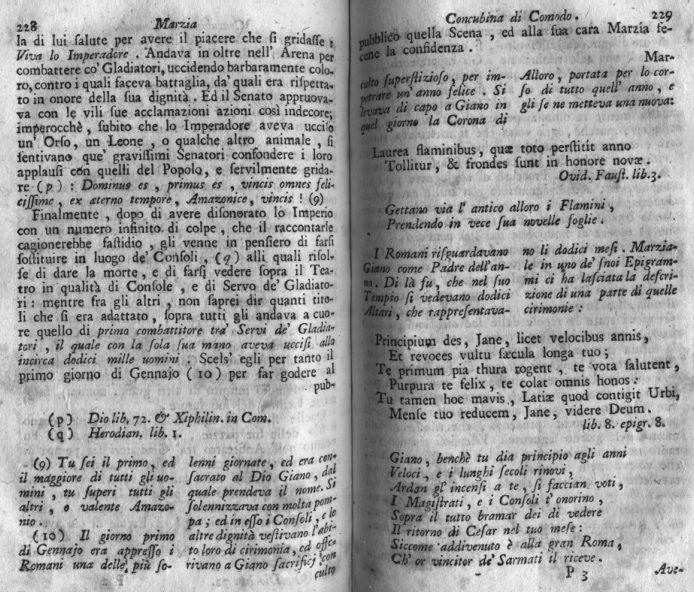 228 Marzia
la di lui salute per avere il piacere che si gridasse:
Viva lo Imperadore. Andava in oltre nell' Arena per
combattere co' Gladiatori, uccidendo barbaramente colo-
ro, contro i quali faceva battaglia, da' quali era rispetta-
to in onore della sua dignità. Ed il Senato approva-
va con le vili sue acclamazioni azioni così indecore;
imperocchè, subito che lo Imperadore aveva ucciso
un' Orso, un Leone, o qualche altro animale, si
sentivano que' gravissimi Senatori confondere i loro
applausi con quelli del Popolo, e servilmente grida-
re (p): Dominus es, primus es, vincis omnes feli-
cissime, ex æterno tempore, Amazonice, vincis! (9)
Finalmente, dopo di avere disonorato lo Imperio
con un numero infinito di colpe, che il raccontarle
cagionerebbe fastidio, gli venne in pensiero di farsi
sostituire in luogo de' Consoli, (q) alli quali risol-
se di dare la morte, e di farsi vedere sopra il Tea-
tro in qualità di Console, e di Servo de' Gladiato-
ri: mentre fra gli altri, non saprei dir quanti tito-
li che si era adattato, sopra tutti gli andava a cuo-
re quello di primo combattitore tra' Servi de' Gladia-
tori, il quale con la sola sua mano aveva uccisi allo
incirca dodici mille uomini. Scels' egli per tanto il
primo giorno di Gennajo (10) per far godere al
pub-
(p) Dio lib. 72. & Xiphilin. in Com.
(q) Herodian. lib. 1.
(9) Tu sei il primo, ed
il maggiore di tutti gli uo-
mini, tu superi tutti gli
altri, o valente Amazo-
nio.
(10) Il giorno primo
di Gennajo era appresso i
Romani una delle più so-
lenni giornate, ed era con-
sacrato al Dio Giano, dal
quale prendeva il nome. Si
solennizzava con molta pom-
pa; ed in esso i Consoli, e le
altre dignità vestivano l'abi-
to loro di cirimonia, ed offe-
rivano a Giano sacrifici con
culto
Concubina di Comodo. 229
pubblico quella Scena, ed alla sua cara Marzia fe-
cene la confidenza.
Mar-
culto superstizioso, per im-
petrare un' anno felice. Si
levava di capo a Giano in
quel giorno la Corona di
Alloro, portata per lo cor-
so di tutto quell' anno, e
gli se ne metteva una nuova:
Laurea flaminibus, quæ toto perstitit anno
Tollitur, & frondes sunt in honore novæ.
Ovid. Faust. lib. 3.
Gettano via l' antico alloro i Flamini,
Prendendo in vece sua novelle foglie.
I Romani risguardavano
Giano come Padre dell'an-
no. Di là fu, che nel suo
Tempio si vedevano dodici
Altari, che rappresentava-
no li dodici mesi. Marzia-
le in uno de' suoi Epigram-
mi ci ha lasciata la descri-
zione di una parte di quelle
cirimonie:
Principium des, Jane, licet velocibus annis,
Et revoces vultu sæcula longa tuo;
Te primum pia thura rogent, te vota salutent,
Purpura te felix, te colat omnis honos:
Tu tamen hoc mavis, Latiæ quod contigit Urbi,
Mense tuo reducem, Jane, videre Deum.
lib. 8. epigr. 8.
Giano, benchè tu dia principio agli anni
Veloci, e i lunghi secoli rinovi,
Ardan gl' incensi a te, si faccian voti,
I Magistrati, e i Consoli t' onorino,
Sopra il tutto bramar dei di vedere
Il ritorno di Cesar nel tuo mese:
Siccome addivenuto è alla gran Roma,
Ch' or vincitor de' Sarmati il riceve.
P 3 Ave-